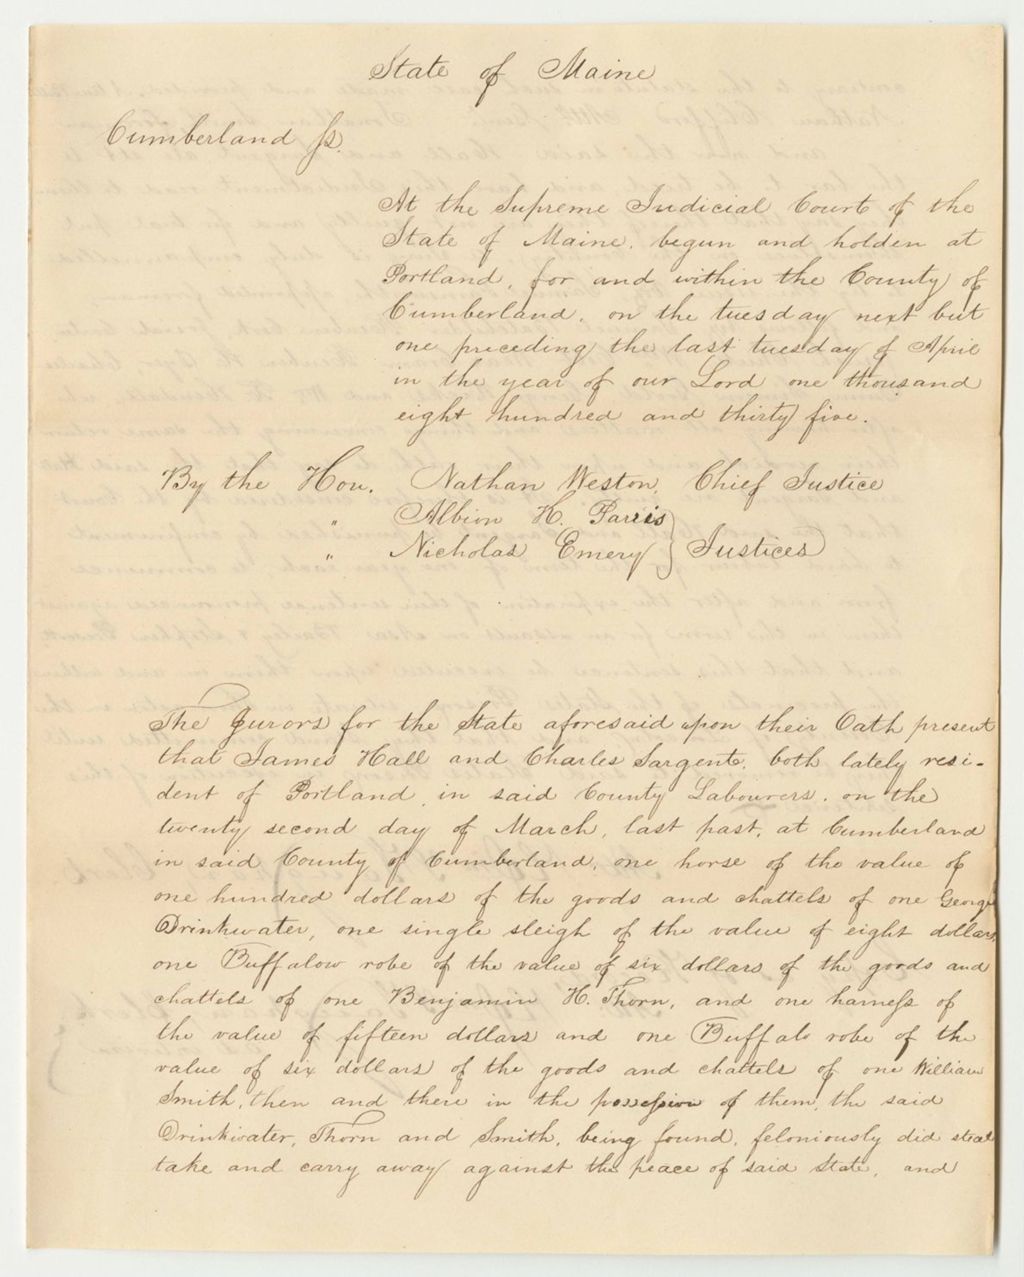 State of Maine
Cumberland ss.
At the Supreme Judicial Court of the
State of Maine, begun and holden at
Portland, for and within the County of
Cumberland, on the tuesday next but
one preceding the last tuesday of April
in the year of our Lord one thousand
eight hundred and thirty five.
By the Hon. Nathan Weston, Chief Justice
" Albion K. Parris
" Nicholas Emery } Justices
The Jurors for the State aforesaid upon their Oath present
that James Hall and Charles Sargent, both lately resi-
dent of Portland, in said County Labourers, on the
twenty second day of March, last past, at Cumberland
in said County of Cumberland, one horse of the value of
one hundred dollars of the goods and chattels of one George
Drinkwater, one single sleigh of the value of eight dollars,
one Buffalow robe of the value of six dollars of the goods and
chattels of one Benjamin H. Thorn, and one harness of
the value of fifteen dollars and one Buffalo robe of the
value of six dollars of the goods and chattels of one William
Smith, then and there in the possession of them, the said
Drinkwater, Thorn and Smith, being found, feloniously did steal
take and carry away against the peace of said State, and